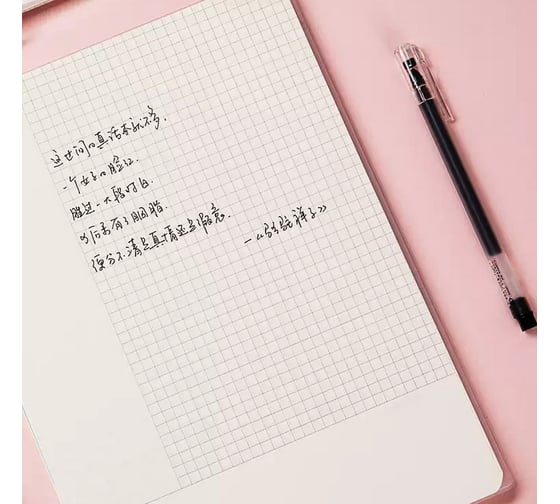 这世间的真话本就不多.
一个女子的脸红.
胜过一大段对白
可后来有了胭脂
便分不清是真情还是假意.
—《骆驼祥子》